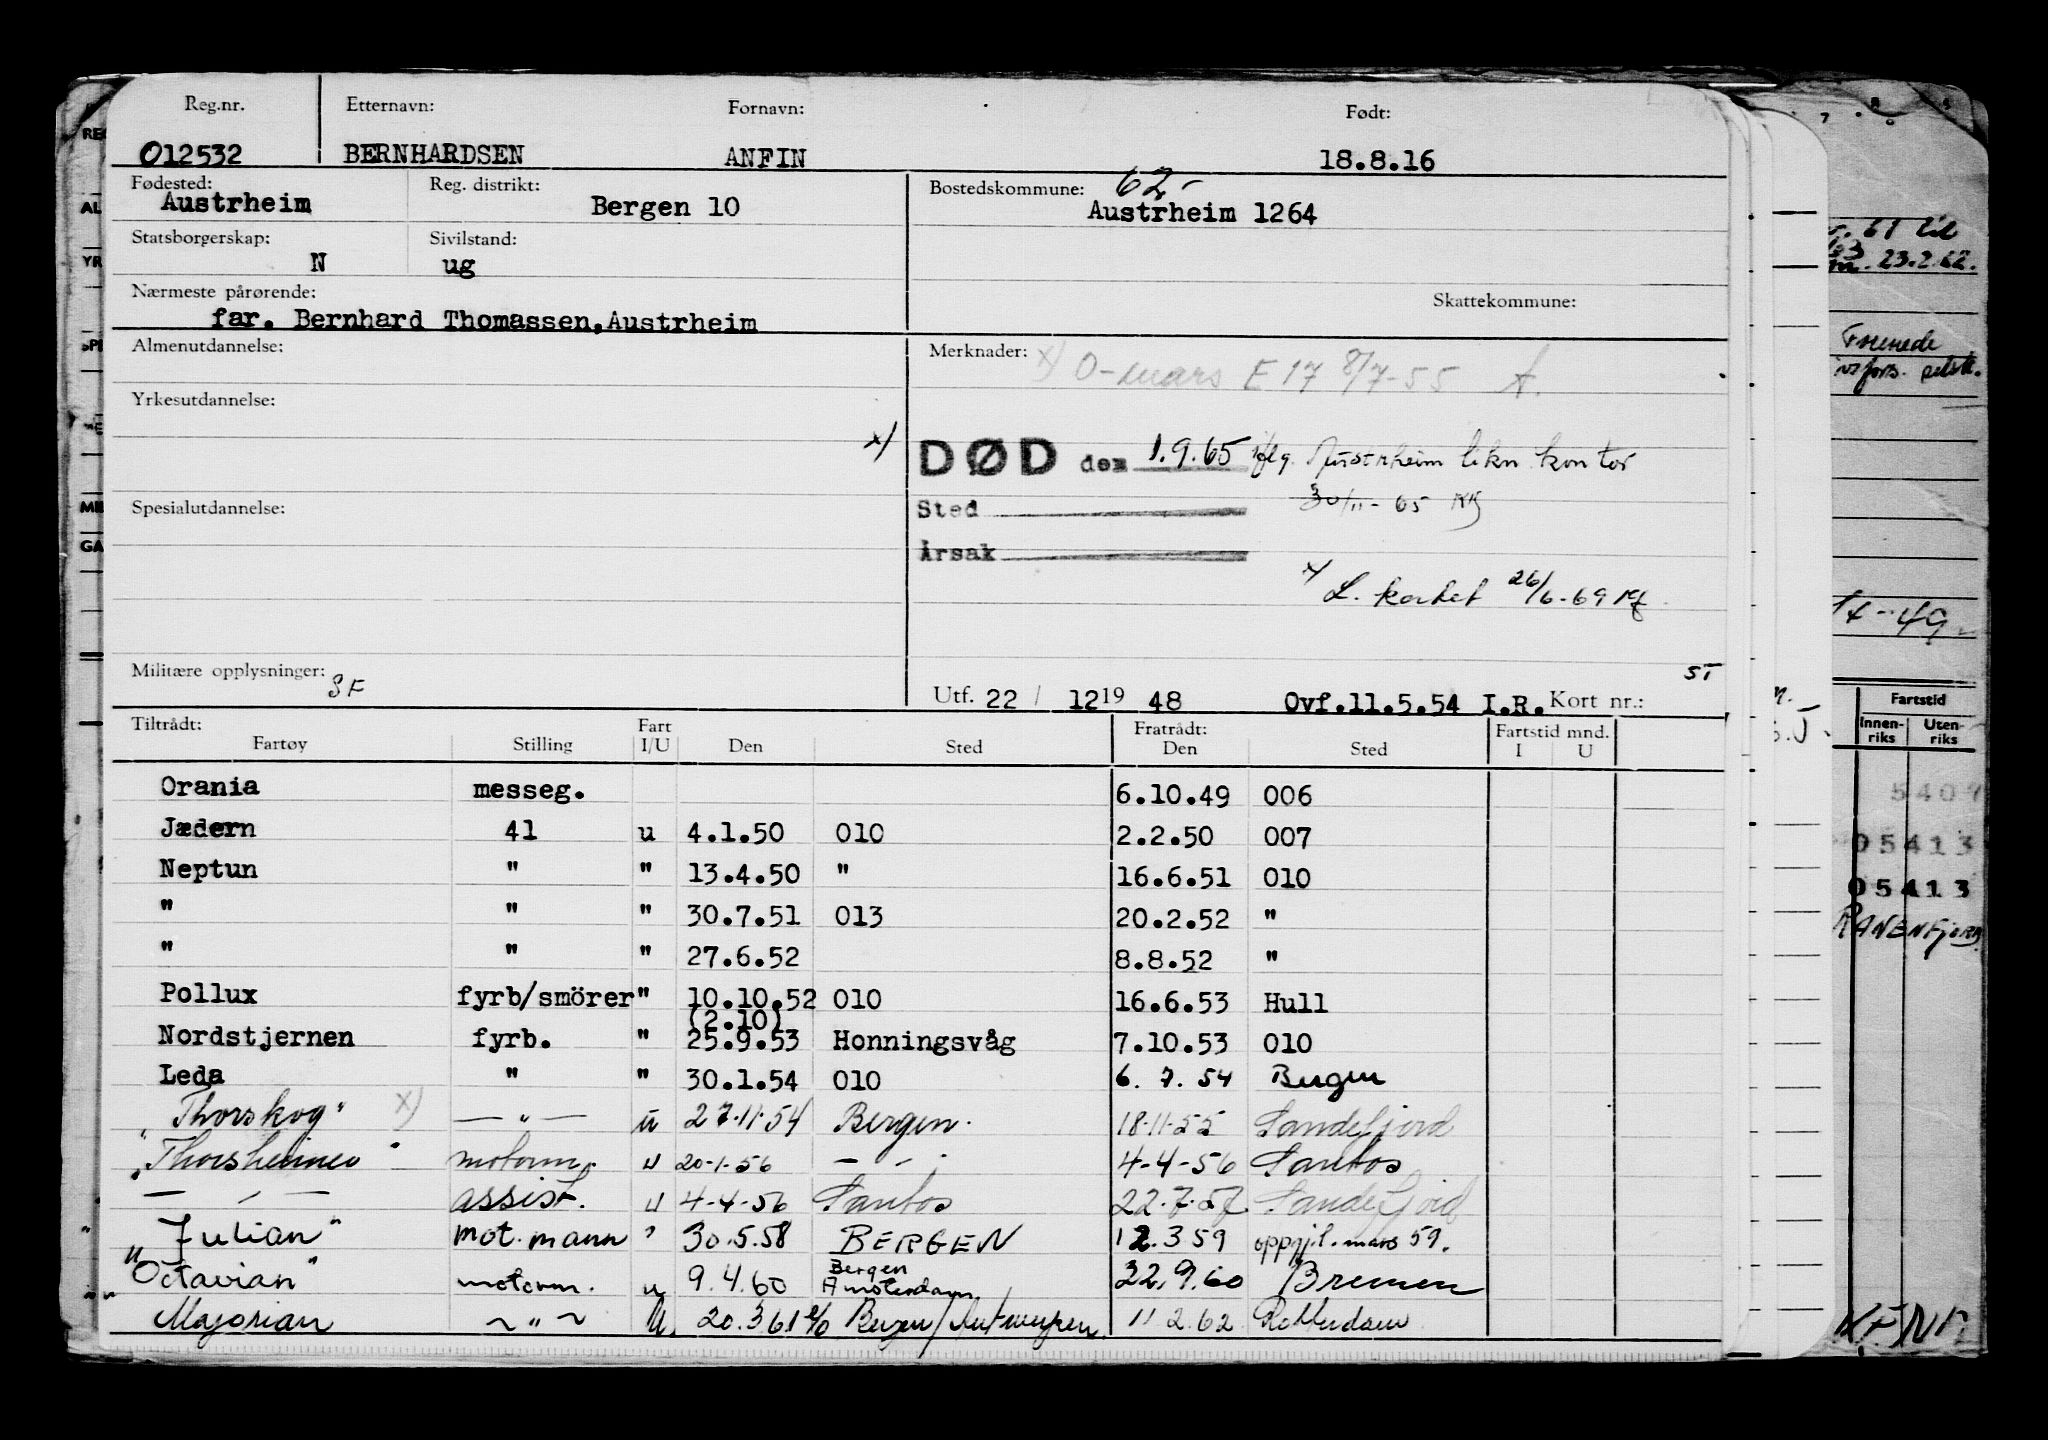 Reg.nr. Etternavn: Fornavn: Født:
012532 BERNHARDSEN ANFIN 18.8.16
Fødested: Reg. distrikt: Bostedskommune: 62,-
Austrheim Bergen 10 Austrheim 1264
Statsborgerskap: Sivilstand:
N ug
Nærmeste pårørende: Skattekommune:
far. Bernhard Thomassen, Austrheim
Almenutdannelse: Merknader: x) O-mars E 17 8/7-55 A.
Yrkesutdannelse:
x) DØD den 1.9.65 iflg. Austrheim likn. kontor
30/11-65 KG
Spesialutdannelse: Sted
Årsak
x) L. kortet 26/6-69
Militære opplysninger: SF ST
Utf. 22 / 12 19 48 Ovf.11.5.54 I.R. Kort nr.:
Tiltrådt: Fart Fratrådt: Fartstid mnd.
Fartøy Stilling I/U Den Sted Den Sted I U
Orania messeg. 6.10.49 006
Jædern 41 u 4.1.50 010 2.2.50 007
Neptun " " 13.4.50 " 16.6.51 010
" " " 30.7.51 013 20.2.52 "
" " " 27.6.52 8.8.52 "
Pollux fyrb/smörer " 10.10.52 010 16.6.53 Hull
(2.10)
Nordstjernen fyrb. " 25.9.53 Honningsvåg 7.10.53 010
Leda " " 30.1.54 010 6. 7. 54 Bergen
"Thorskog" x) — " — u 27.11.54 Bergen. 18.11.55 Sandefjord
"Thorsheimer" motorm. u 20-1-56 — " — 4-4-56 Santos
— " — assist. u 4-4-56 Santos 22.7.57 Sandefjord
"Julian" mot. mann " 30.5.58 BERGEN 12.3 59 oppgj.l. mars 59.
"Octavian" motorm. u 9.4.60 Bergen Amsterdam 22.9.60 Bremen
" Majorian ~ " ~ U 20.3 61 Bergen/Antwerpen 11 2.62 Rotterdam
61 til
23.2.62.
Fartstid
Innen-riks Uten-riks
05413
05413
RANENFJORD